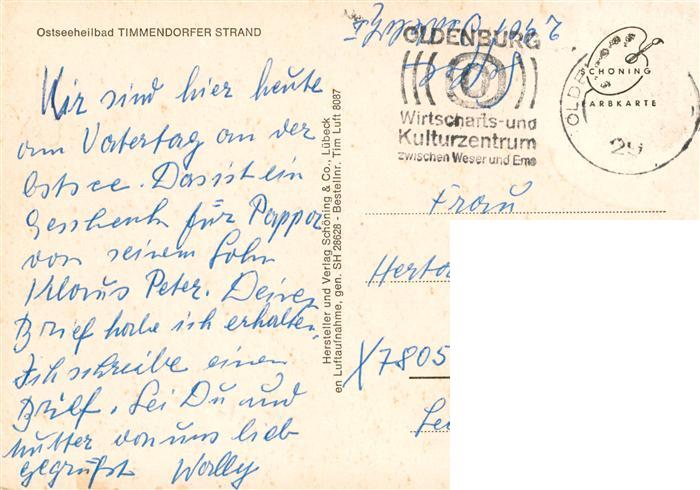 Ostseeheilbad TIMMENDORFER STRAND
Wir sind hier heute
am Vatertag an der
Ostsee. Das ist ein
Geschenk für Pappa
von seinem Sohn
Klaus Peter. Deinen
Brief habe ich erhalten.
Ich schreibe einen
Brief. Sei Du und
Mutter von uns lieb
gegrüßt Wally
Hersteller und Verlag Schöning & Co., Lübeck
en Luftaufnahme, gen. SH 28628 - Bestellnr. Tim Luft 8087
OLDENBURG
Wirtschafts-und
Kulturzentrum
zwischen Weser und Ems
OLDE
29
SCHÖNING
FARBKARTE
Frau
7805